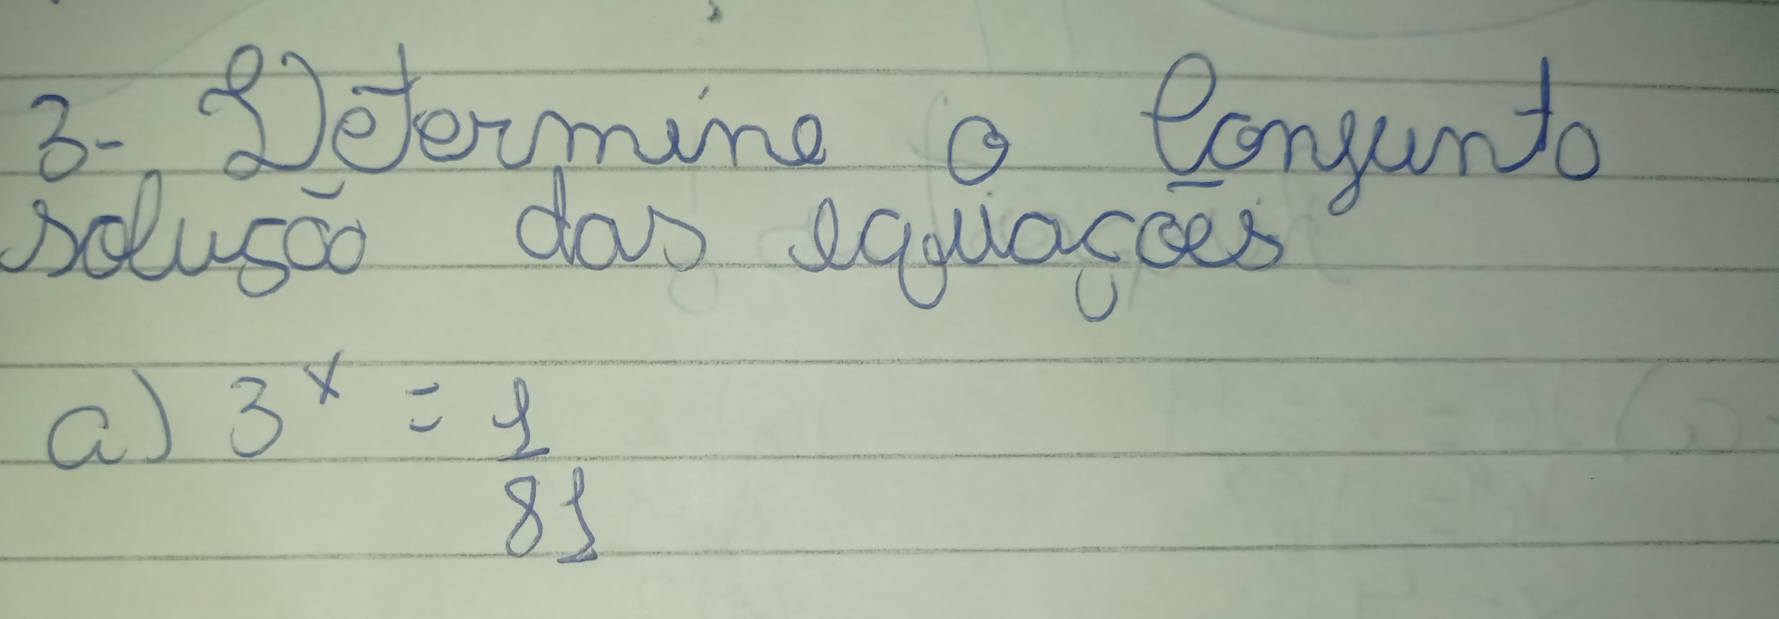 3- Determine o Conjunto
solução das equações
a) 3^x = 1/81